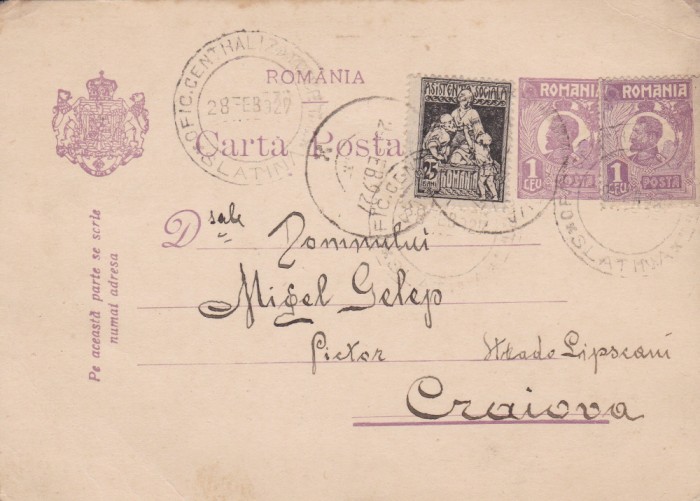 ROMÂNIA
Carta Posta
OFIC.CENTRALIZA
28 FEB 929
SLATINA
ASISTENȚA SOCIALĂ
25
ROMANIA
ROMANIA
1 LEU
POSTA
ROMANIA
1 LEU
POSTA
SLATINA
D sale Domnului
Migel Gelep
Pictor Strada Lipscani
Craiova
Pe această parte se scrie
numai adresa